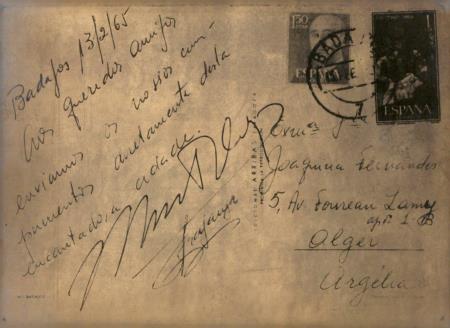 Badajos 13/2/65
Aos queridos amigos
enviamos os nossos cum-
primentos directamente desta
encantadora cidade.
1,50
BADAJ
1
ESPAÑA
Joaquina Fernandes
5, Av. Foureau Lamy
aptº 1
Alger
Argélia